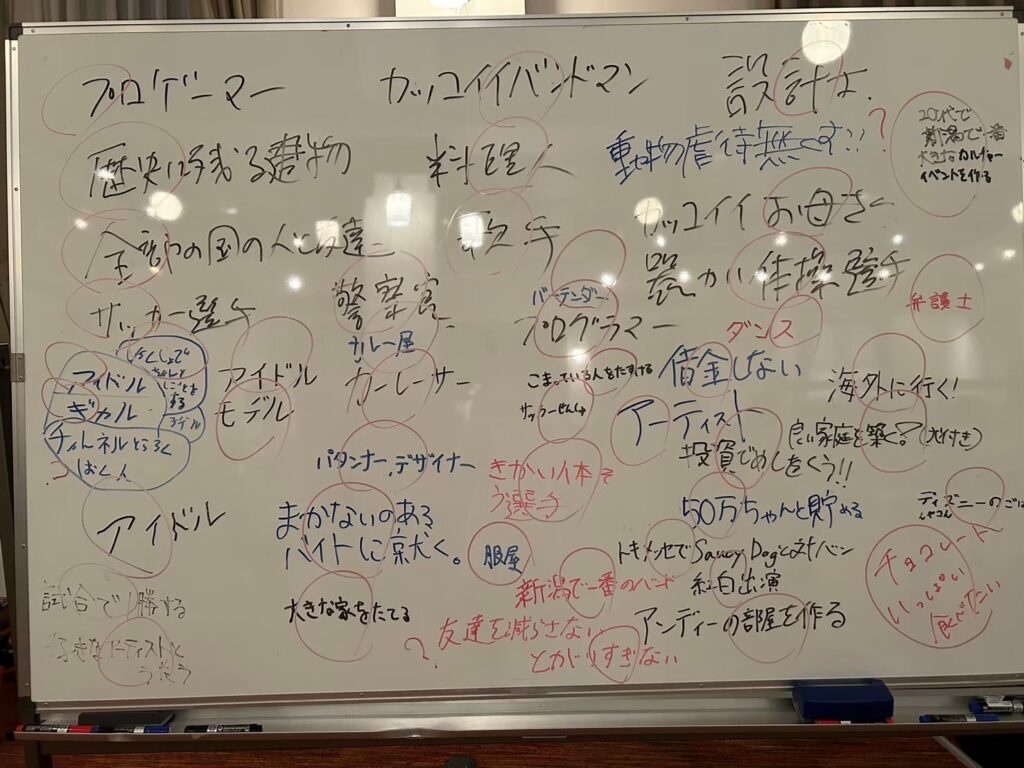 プロゲーマー
カッコイイバンドマン
設計士
20代で
新潟で一番
大きなカルチャー
イベントを作る
歴史に残る建物
料理人
動物虐待無くす!!
?
カッコイイお母さん
全部の国の人と友達
歌手
器かい体操選手
サッカー選手
警察官
バーテンダー
プログラマー
ダンス
弁護士
カレー屋
アイドル
ギャル
しごとを
する
モデル
チャンネルとうろく
アイドル
モデル
カーレーサー
こまっている人をたすける
サッカーせんしゅ
借金しない
海外に行く!
アーティスト
良い家庭を築く?(犬付き)
投資でめしをくう!!
パタンナー、デザイナー
きかい体そ
う選手
アイドル
まかないのある
バイトに就く。
服屋
50万ちゃんと貯める
ディズニーのごは
トキメッセでSaucy Dogと対バン
チョコレート
いっぱい
食べたい
新潟で一番のバンド
紅白出演
試合で1勝する
大きな家をたてる
?
友達を減らさない
とがりすぎない
アンディーの部屋を作る
好きなアーティストと
うたう